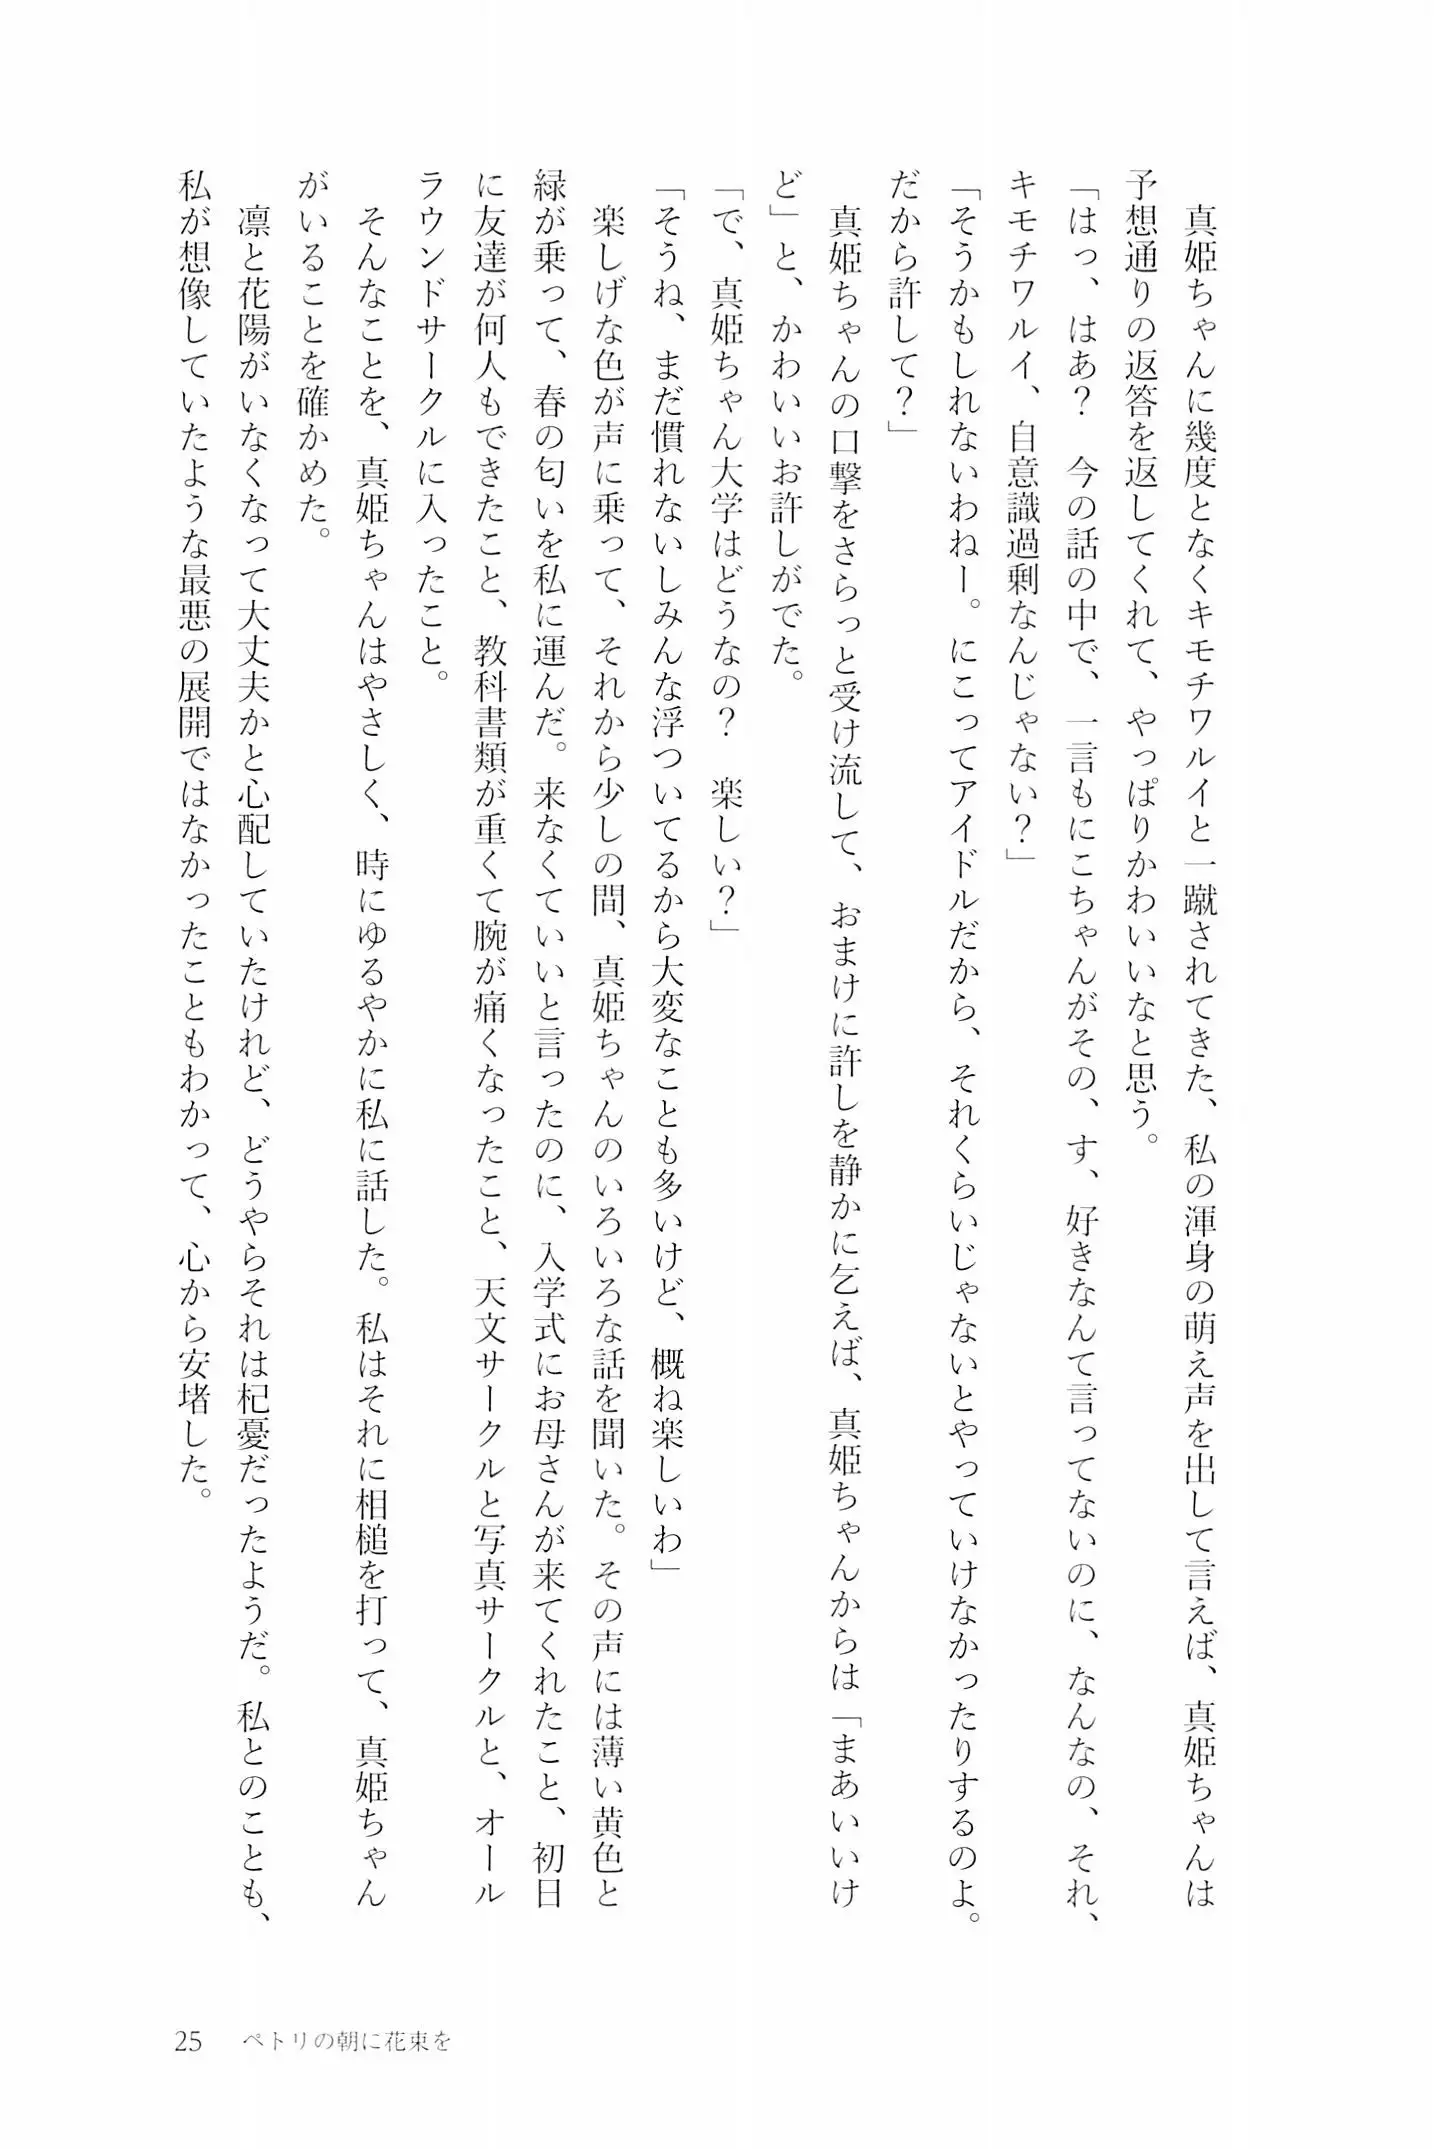 真姫ちゃんに幾度となくキモチワルイと一蹴されてきた、私の渾身の萌え声を出して言えば、真姫ちゃんは
予想通りの返答を返してくれて、やっぱりかわいいなと思う。
「はっ、はあ？　今の話の中で、一言もにこちゃんがその、す、好きなんて言ってないのに、なんなの、それ、
キモチワルイ、自意識過剰なんじゃない？」
「そうかもしれないわねー。にこってアイドルだから、それくらいじゃないとやっていけなかったりするのよ。
だから許して？」
　真姫ちゃんの口撃をさらっと受け流して、おまけに許しを静かに乞えば、真姫ちゃんからは「まあいいけ
ど」と、かわいいお許しがでた。
「で、真姫ちゃん大学はどうなの？　楽しい？」
「そうね、まだ慣れないしみんな浮ついてるから大変なことも多いけど、概ね楽しいわ」
　楽しげな色が声に乗って、それから少しの間、真姫ちゃんのいろいろな話を聞いた。その声には薄い黄色と
緑が乗って、春の匂いを私に運んだ。来なくていいと言ったのに、入学式にお母さんが来てくれたこと、初日
に友達が何人もできたこと、教科書類が重くて腕が痛くなったこと、天文サークルと写真サークルと、オール
ラウンドサークルに入ったこと。
　そんなことを、真姫ちゃんはやさしく、時にゆるやかに私に話した。私はそれに相槌を打って、真姫ちゃん
がいることを確かめた。
　凛と花陽がいなくなって大丈夫かと心配していたけれど、どうやらそれは杞憂だったようだ。私とのことも、
私が想像していたような最悪の展開ではなかったこともわかって、心から安堵した。
25　ペトリの朝に花束を